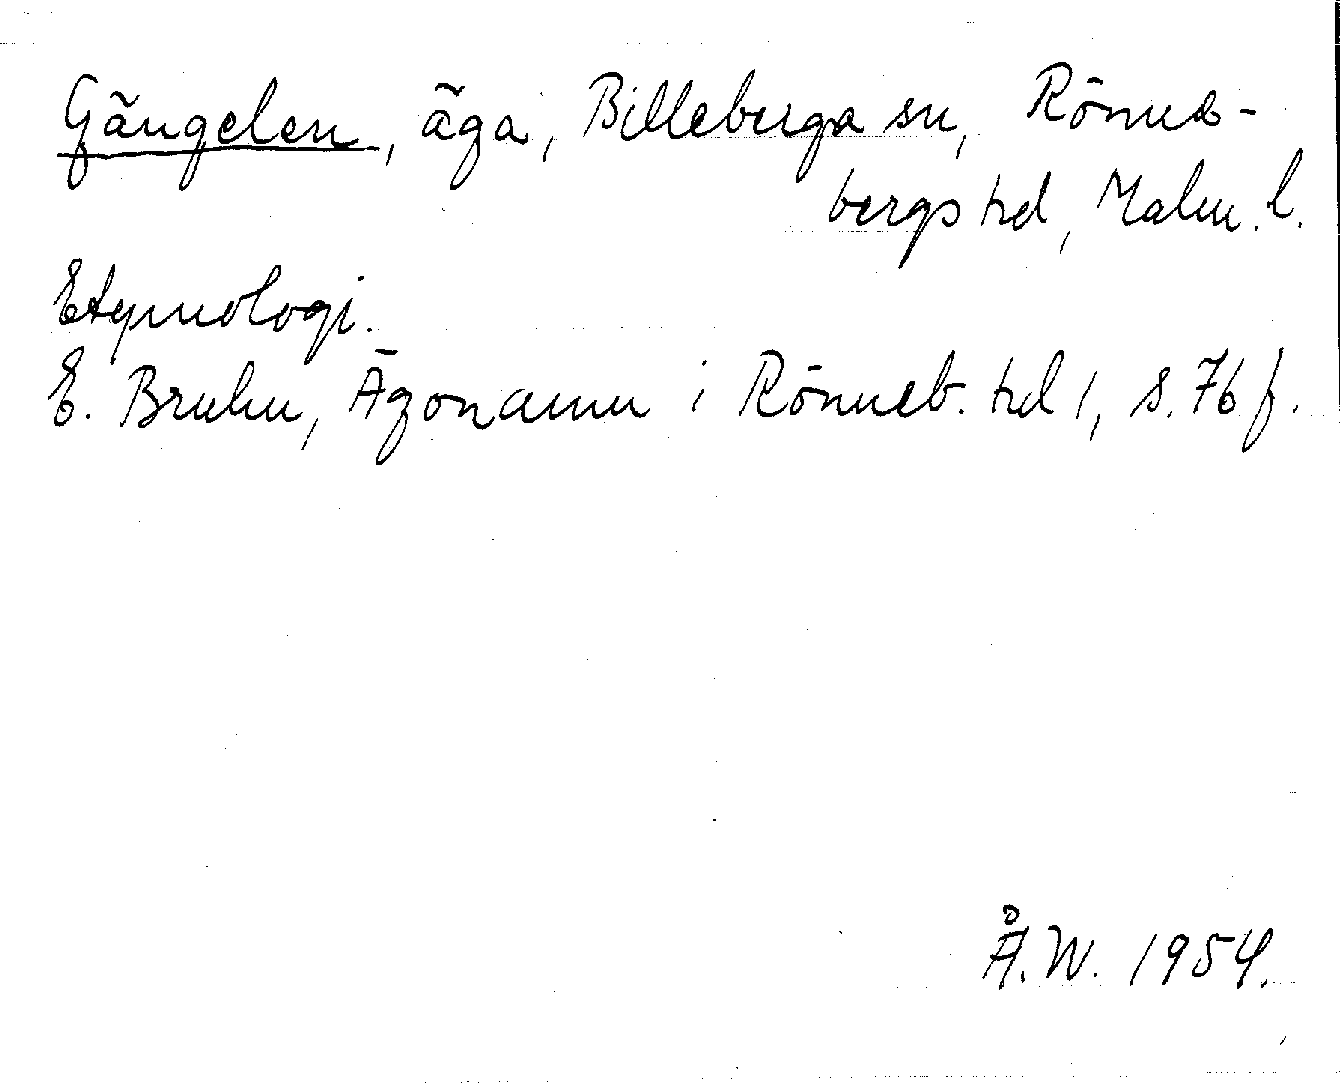 Gängelen, äga, Billeberga sn, Rönne-
bergs hd, Malm. l.
Etymologi.
E. Bruhn, Ägonamn i Rönneb. hd 1, s. 76 f.
Å.W. 1954.